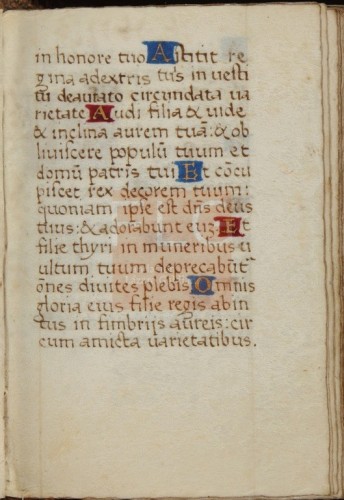 in honore tuo Astitit re
gina adextris tuis in vesti
tu deaurato circundata va
rietate Audi filia & vide
& inclina aurem tuã: & ob
liviscere populũ tuum et
domũ patris tui Et cõcu
piscet rex decorem tuum:
quoniam ipse est dñs deus
tuus: & adorabunt eu Et
filie thyri in muneribus v
ultum tuum deprecabũt
oẽs divites plebis Omnis
gloria eius filie regis abin
tus in fimbrijs aureis: cir
cum amicta varietatibus.